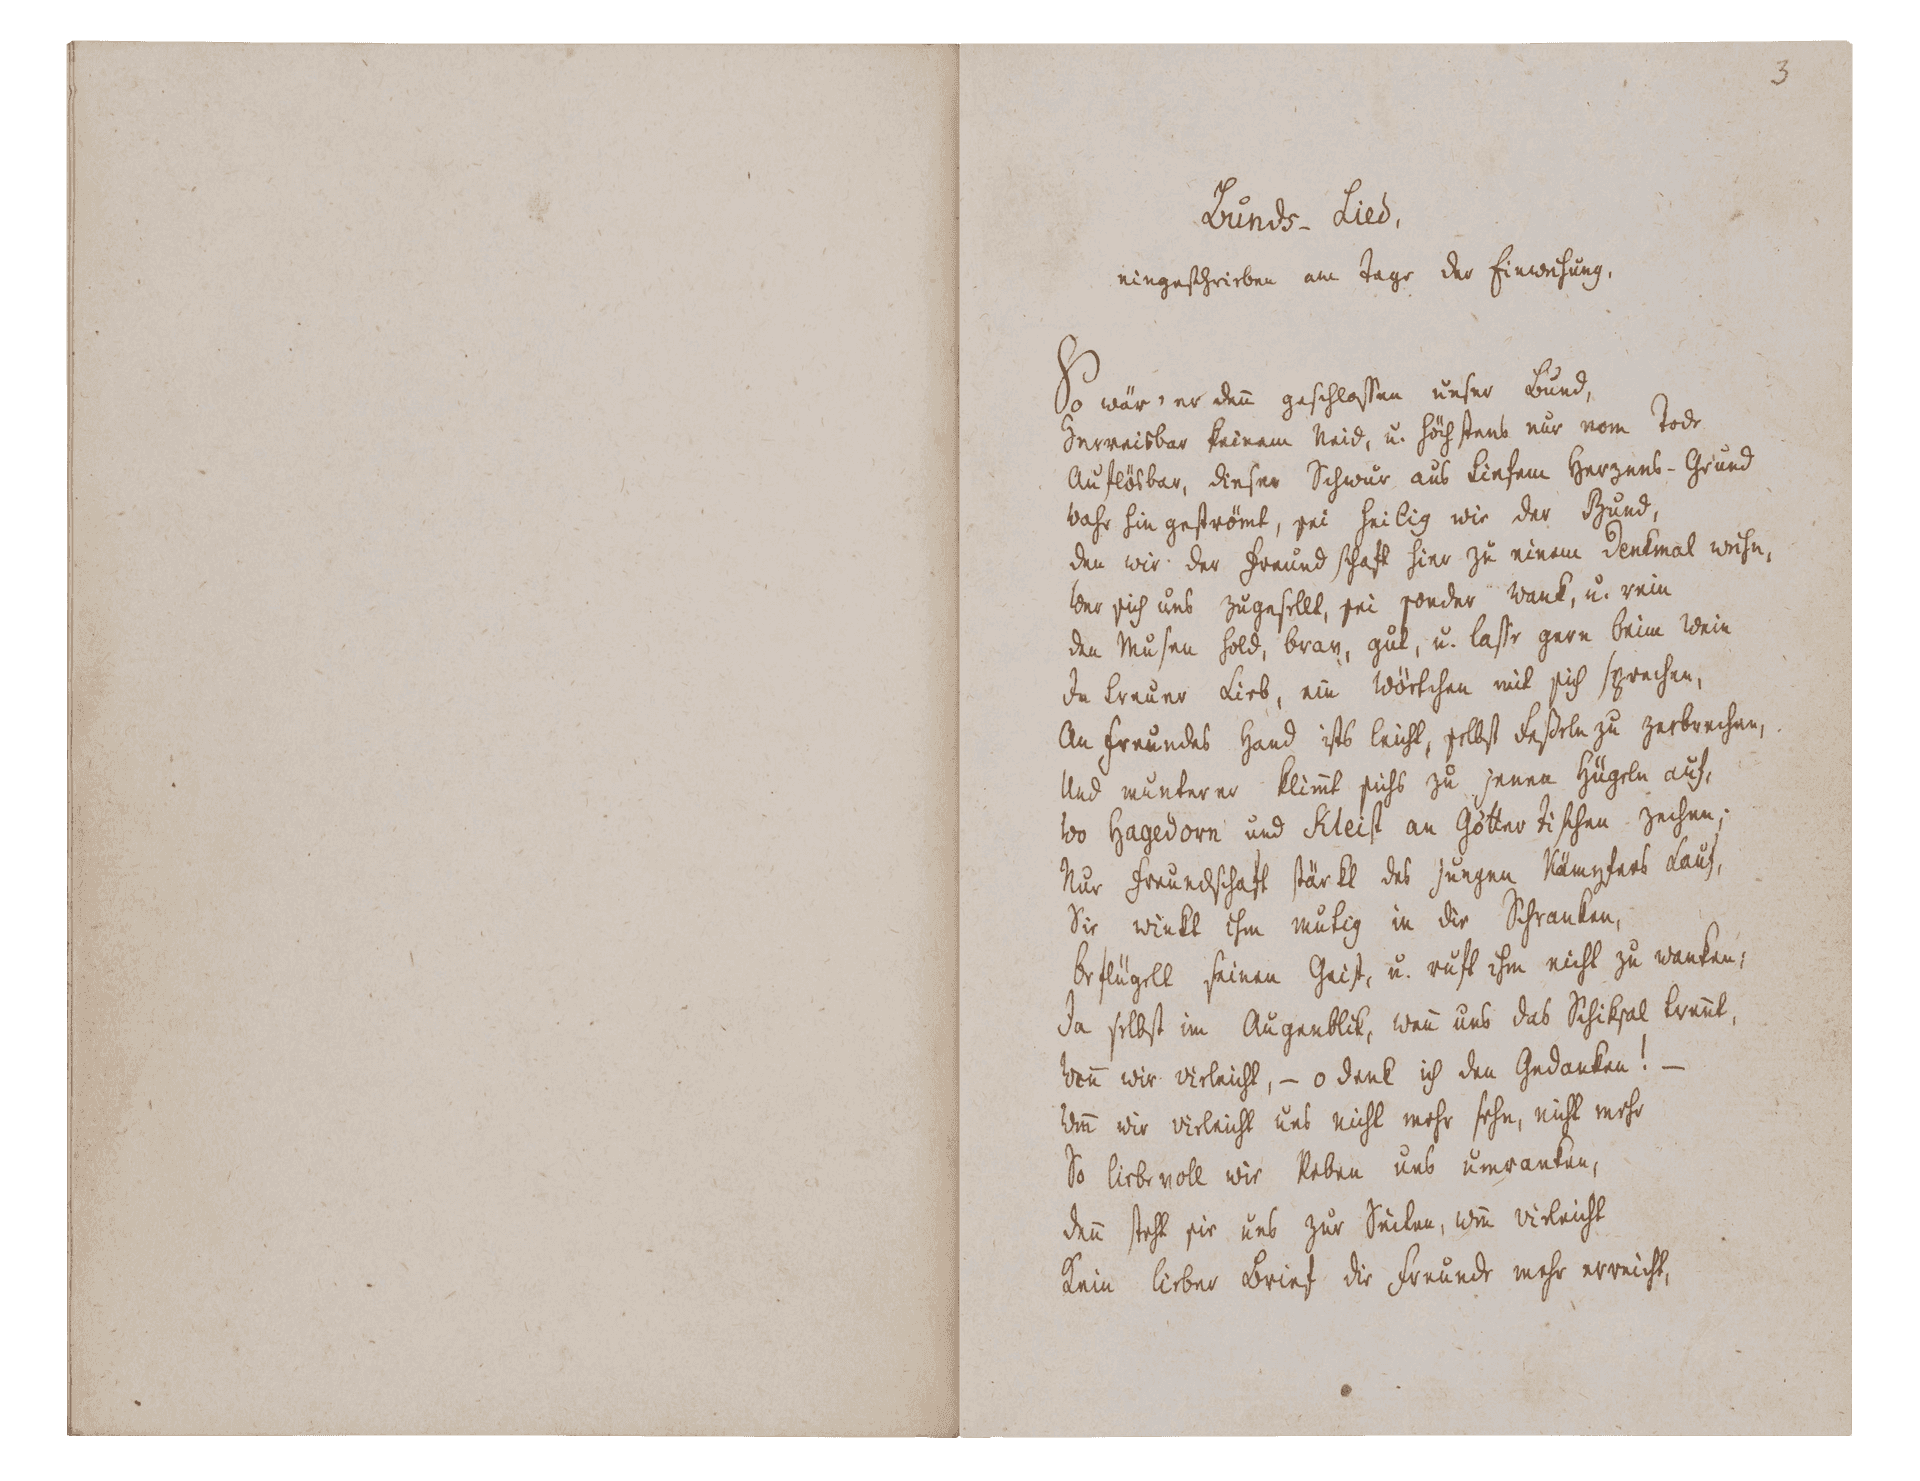 3
Bunds- Lied,
eingeschrieben am Tage der Einweihung.
So wär' er deñ geschlossen unser Bund,
Zerreisbar keinem Neid, u. höchstens nur vom Tode
Auflösbar, dieser Schwur aus tiefem Herzens-Grund
Wahr hingeströmt, sei heilig wie der Bund,
den wir der Freundschaft hier zu einem Denkmal weihn,
Wer sich uns zugesellt, sei sonder Wank, u. rein
den Musen hold, brav, gut, u. lasse gern beim Wein
In treuer Lieb, ein Wörtchen mit sich sprechen,
An Freundes Hand ists leicht, selbst Feßeln zu zerbrechen,
Und munterer klim̃t sichs zu jenen Hügeln auf,
Wo Hagedorn und Kleist an Göttertischen zechen;
Nur Freundschaft stärkt des jungen Kämpfers Lauf,
Sie winkt ihm mutig in die Schranken,
beflügelt seinen Geist, u. ruft ihm nicht zu wanken;
Ja selbst im Augenblik, weñ uns das Schiksal treñt,
Weñ wir vieleicht, – o denk ich den Gedanken! –
Weñ wir vieleicht uns nicht mehr sehn, nicht mehr
So liebevoll wie Reben uns umranken,
deñ steht sie uns zur Seiten, weñ vieleicht
Kein lieber Brief die Freunde mehr erreicht,